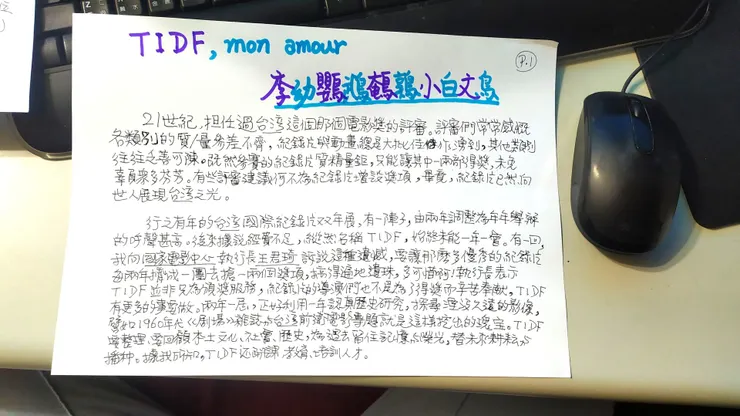 TIDF, mon amour
P.1
李幼鸚鵡鵪鶉小白文鳥
21世紀,担任過台湾這個那個電影獎的評審。評審們常常感慨
各類別的質/量參差不齊,紀錄片與動畫總是大批佳作湧到,其他類別
往往乏善可陳。既然參賽的紀錄片質精量鉅,只能讓其中一兩部得獎,未免
辜負眾多芬芳。有些評審建議何不為紀錄片增設獎項,畢竟,紀錄片已然向
世人展現台湾之光。
行之有年的台湾國際紀錄片双年展,有一陣子,由兩年調整為年年舉辦
的呼聲甚高。後來據說經費不足,縱然名稱TIDF,始終未能一年一會。有一回,
我向國家電影中心執行長王君琦訴說這種遺憾,
每兩年擠成一團去搶一兩個獎項,
TIDF並非只為頒獎服務,紀錄片的導演們也不是為了得獎而辛苦奉献。TIDF
有更多的事要做。兩年一屆,正好利用一年認真歷史研究,探尋埋沒久遠的影像,
譬如1960年代《劇場》雜誌与台湾前衛電影專題就是這樣挖出的瑰宝。TIDF
要整理、要回顧本土文化、社會、歷史,為過去留住記憶与榮光,替未來耕耘与
播种。據我所知,TIDF还